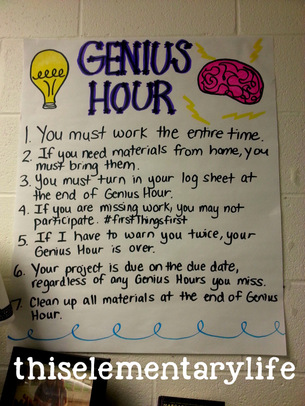 GENIUS
HOUR
1. You must work the entire time.
2. If you need materials from home, you
must bring them.
3. You must turn in your log sheet at
the end of Genius Hour.
4. If you are missing work, you may not
participate. #firstthingsfirst
5. If I have to warn you twice, your
Genius Hour is over.
6. Your project is due on the due date,
regardless of any Genius Hours you miss.
7. Clean up all materials at the end of Genius
Hour.
thiselementarylife